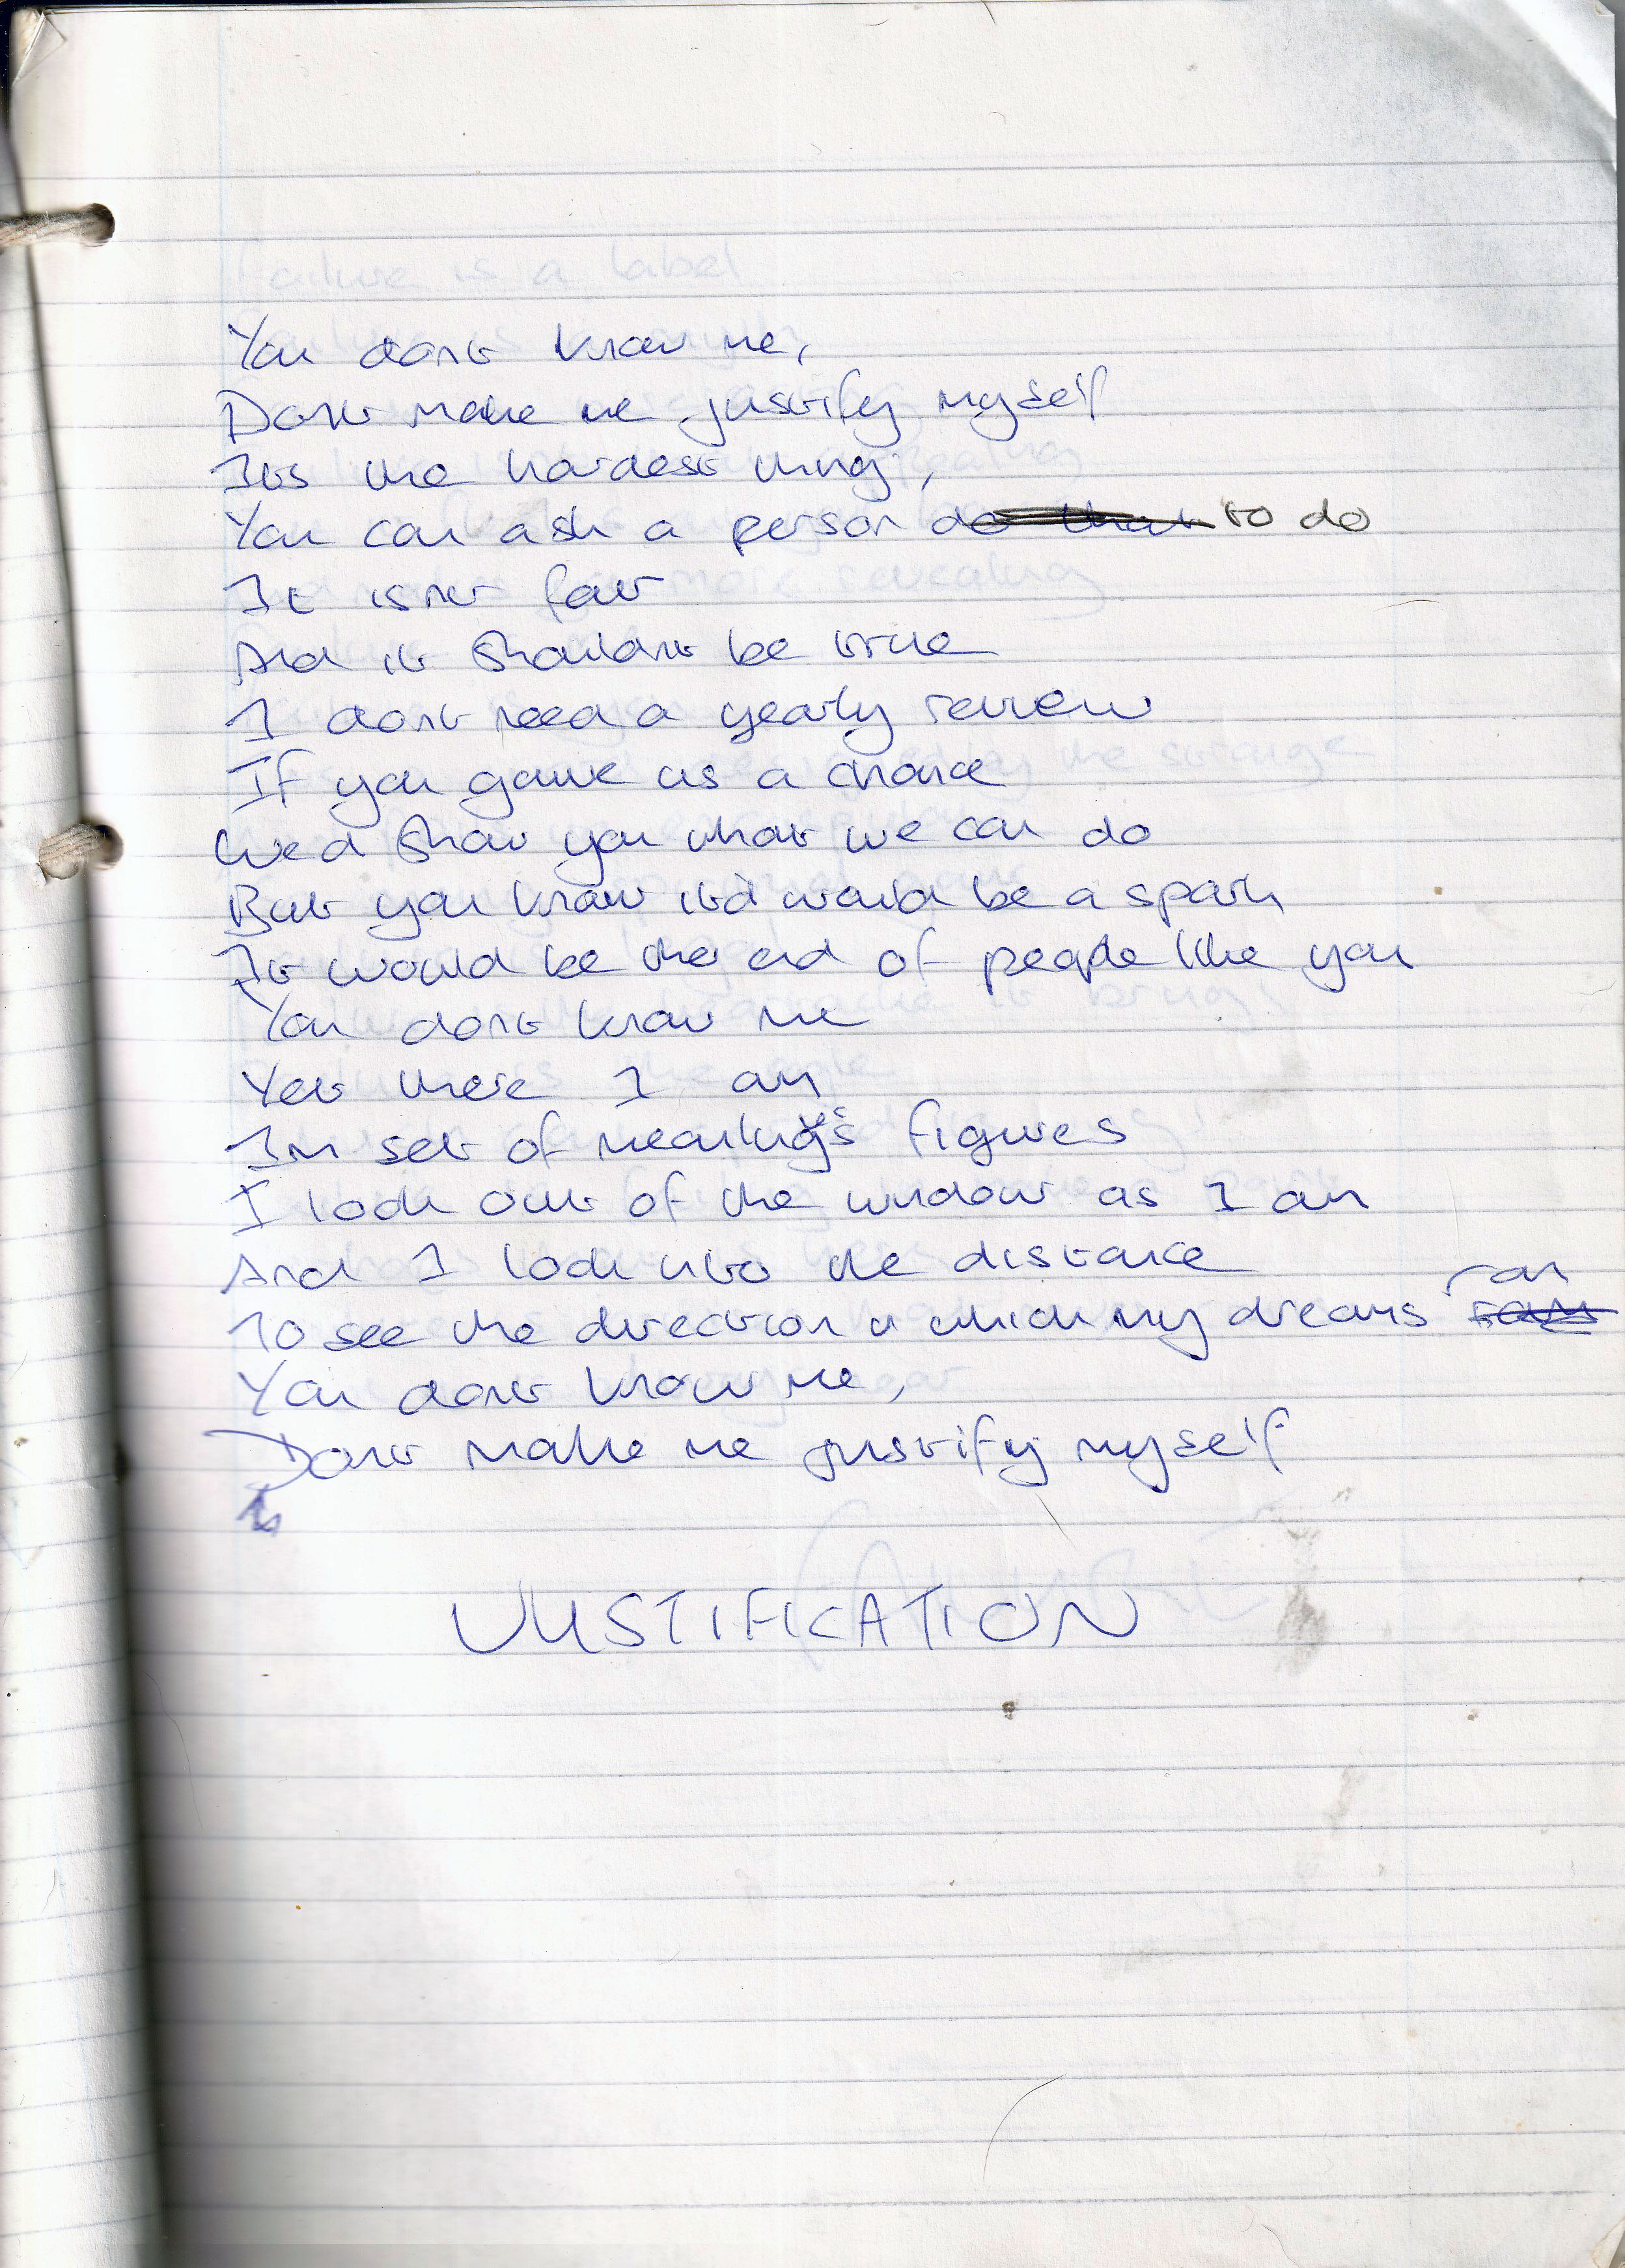 You dont know me,
Dont make me justify myself
Its the hardest thing,
You can ask a person do that to do
It isnt fair
And it shouldnt be true
I dont need a yearly review
If you gave us a chance
We'd show you what we can do
But you know itd would be a spark
It would be the end of people like you
You dont know me
Yet there I am
Im set of meanings figures
I look out of the window as I am
And I look into the distance
To see the direction in which my dreams ran
You dont know me,
Dont make me justify myself
JUSTIFICATION
Failure is a label
more revealing